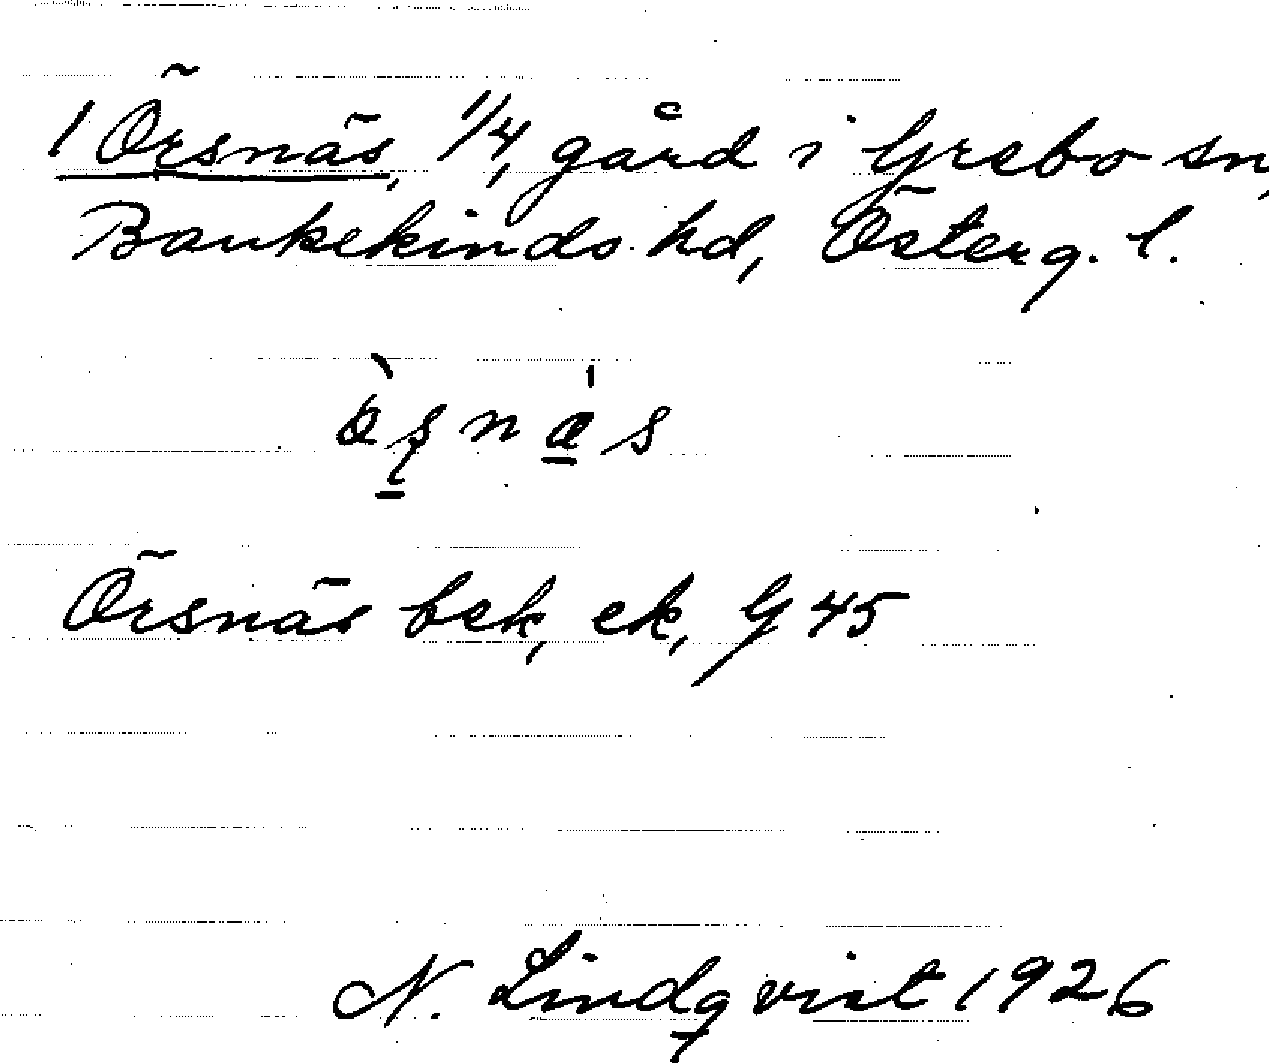 1 Örsnäs, 1/4, gård i Grebo sn,
Bankekinds hd, Österg. l.
Örsnäs bek, ek, G 45
N. Lindqvist 1926